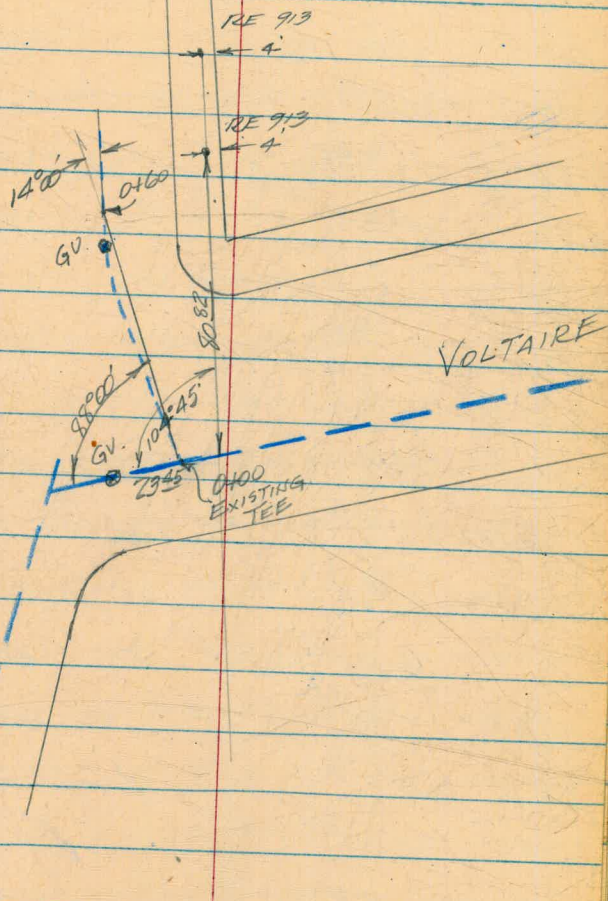 RE 913
4'
RE 913
4'
14°00'
0+60
GV.
80.82
VOLTAIRE
88°00'
104°45'
GV.
23.45
0+00
EXISTING
TEE